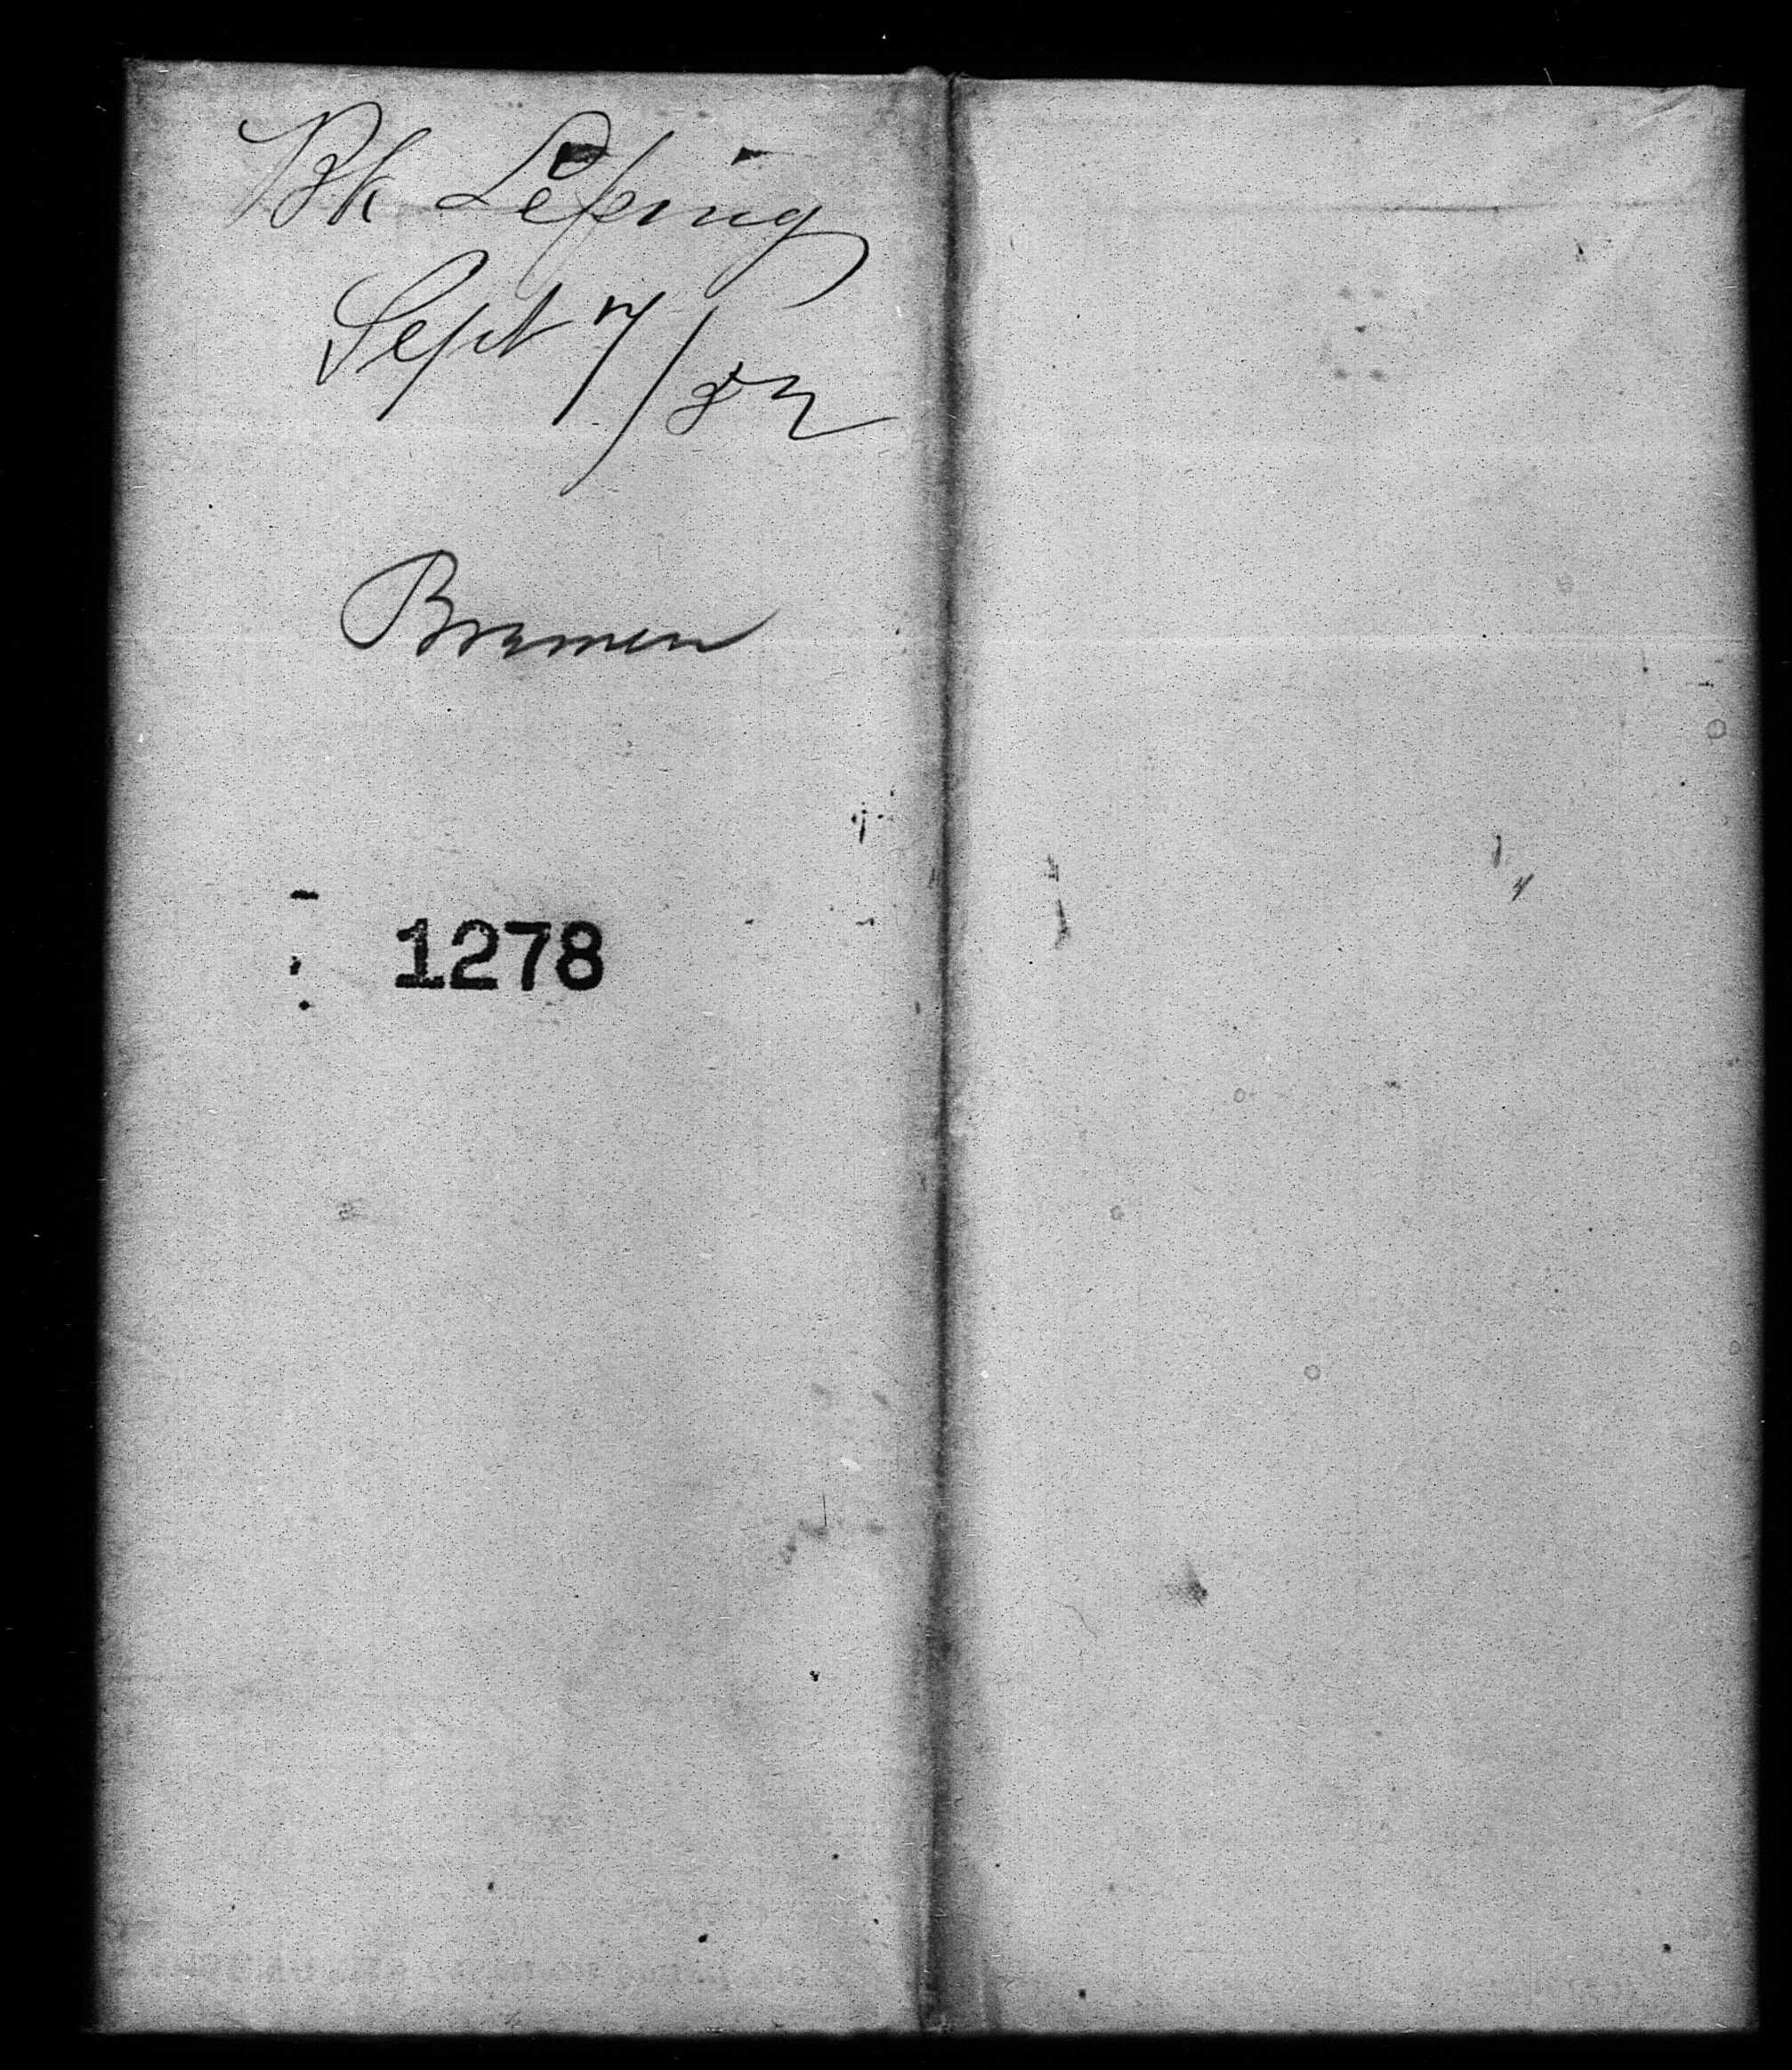 Bk Lessing
Sept 7/82
Bremen
1278